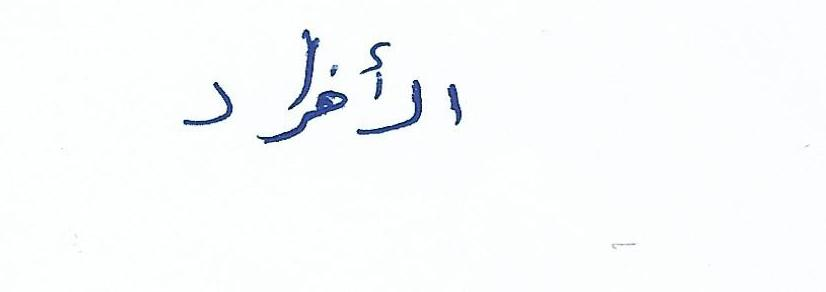 الأفراد